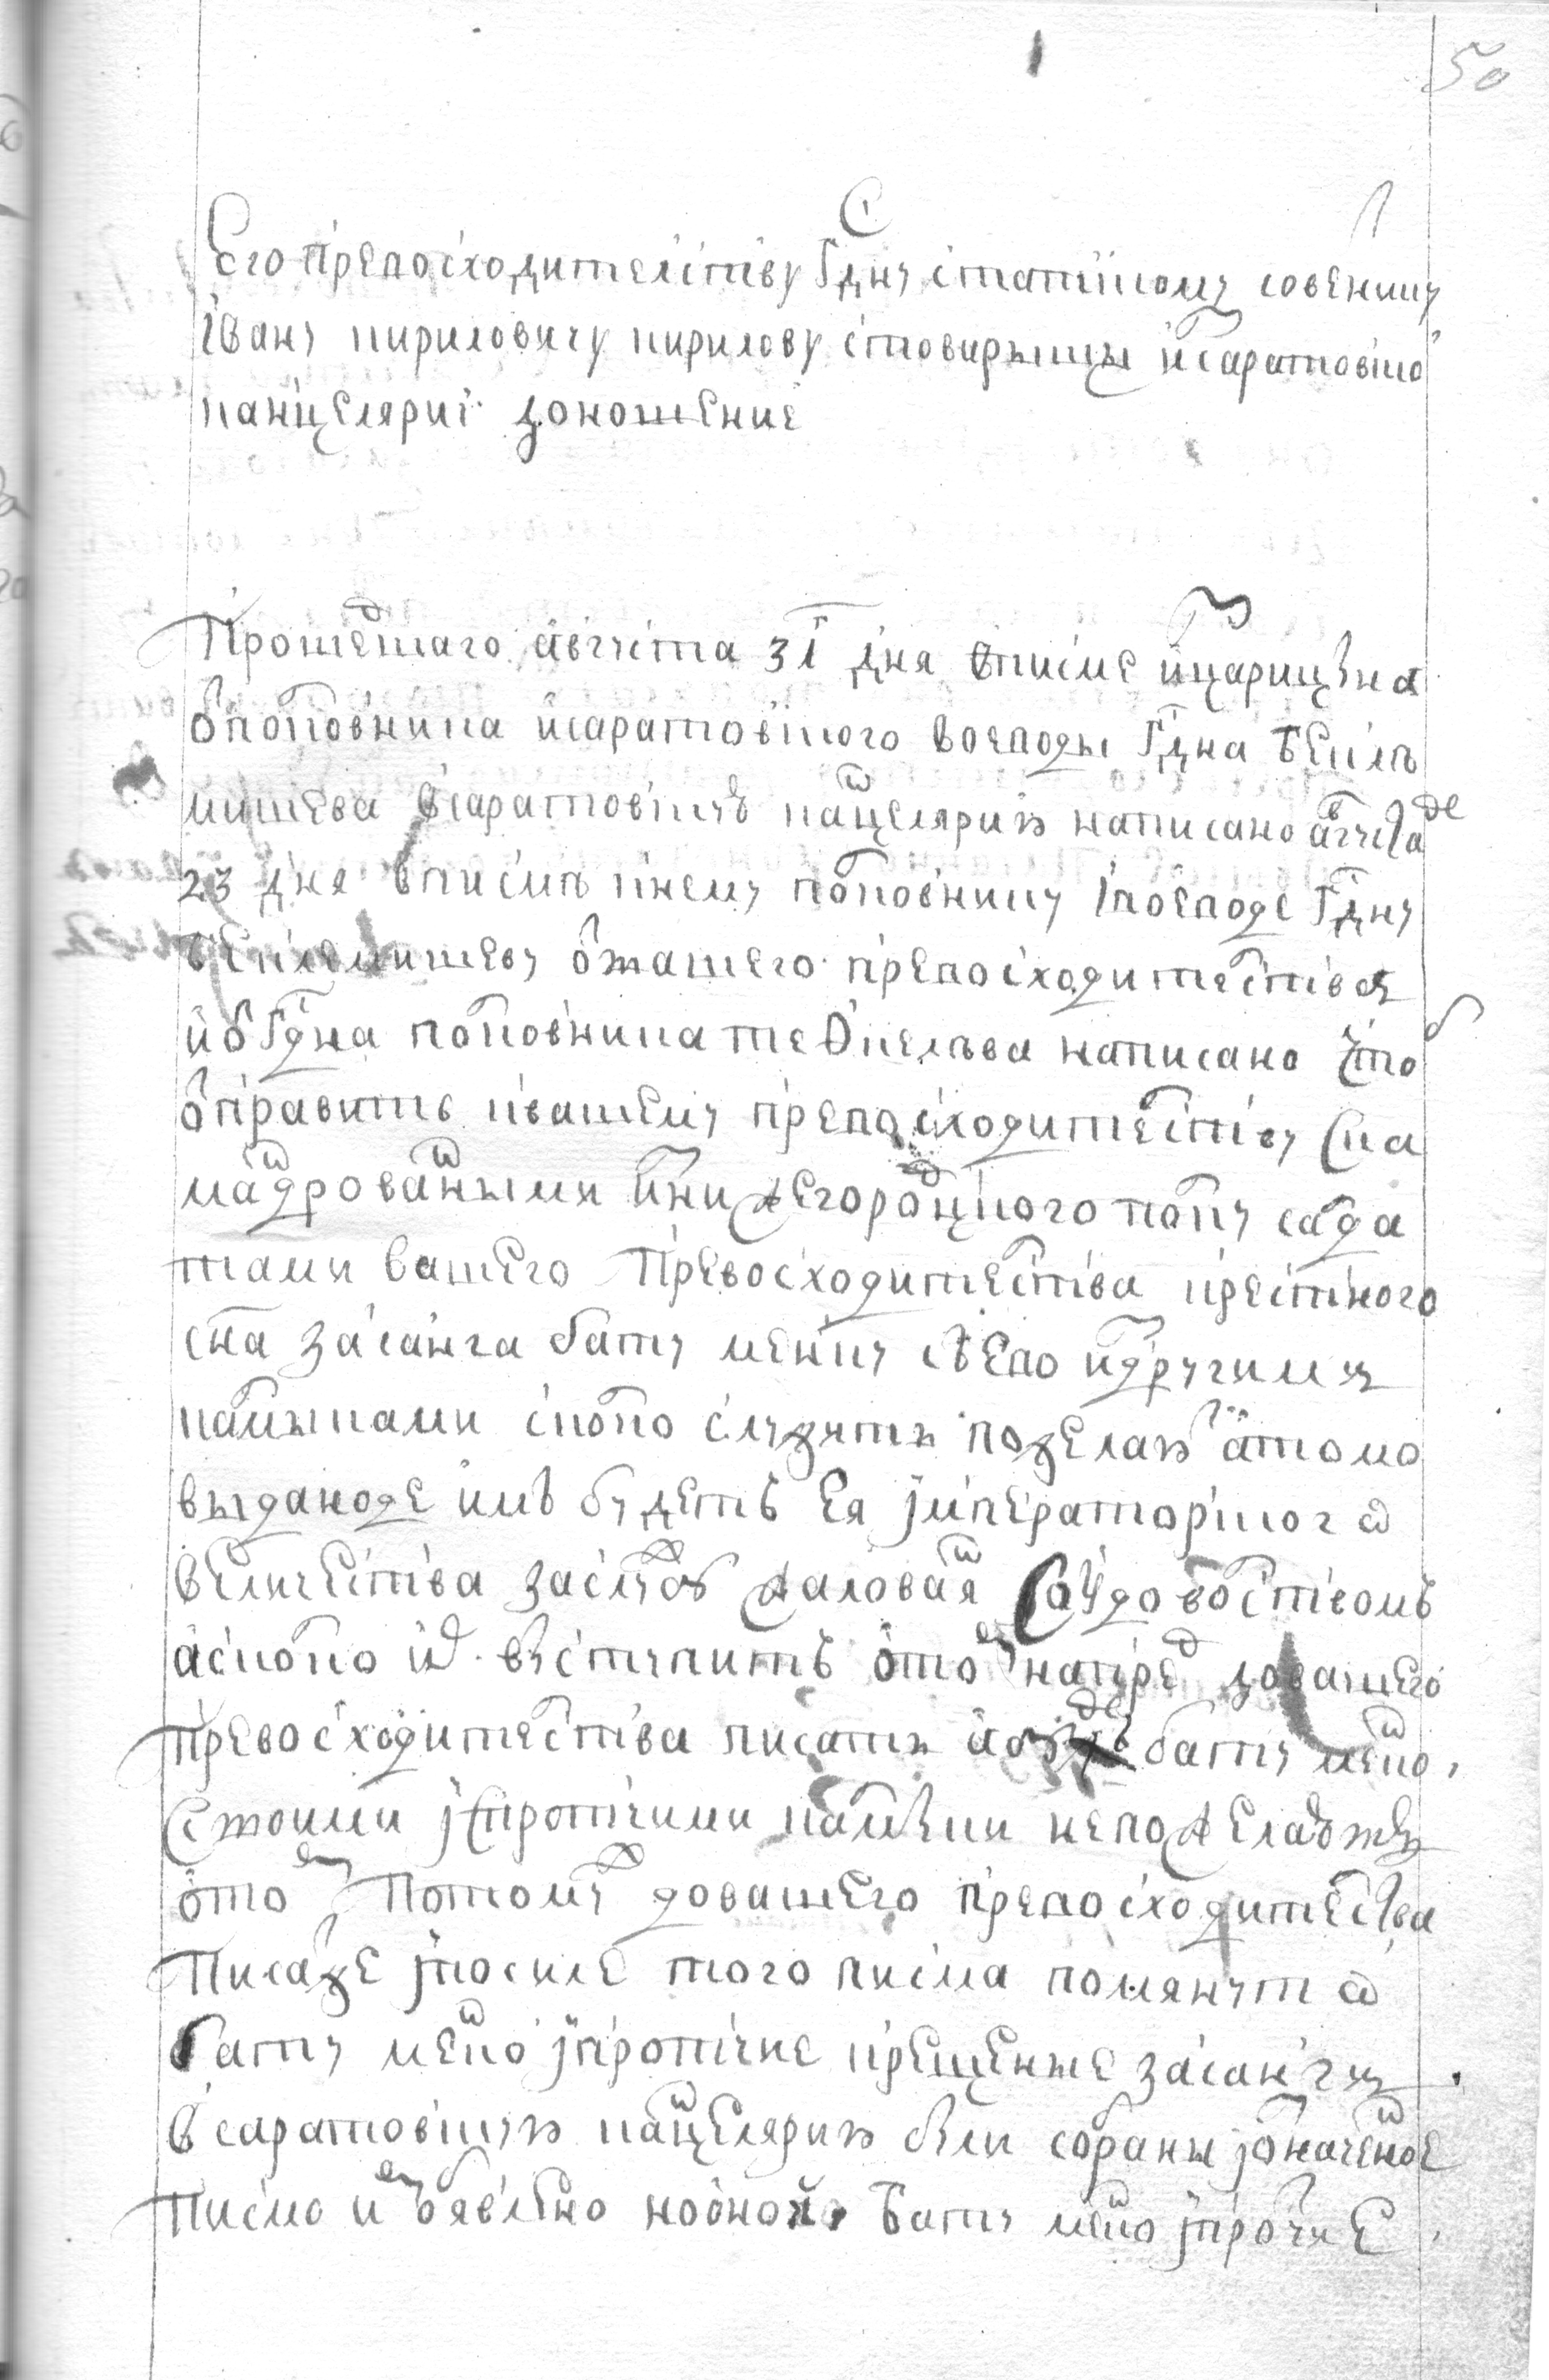 50
Его превосходителству гдну статскому совенику
Ивану Кириловичу Кирилову стоварыщы исаратовско
канцелярии доношение
Прошедшаго августа 31 дня вписме исцарицына
отполковника исаратовского воеводы гдна Беклѣ
мишева всаратовскую канцелярию написано августа де
23 дня вписмѣ кнему полковнику ивоеводе гдну
Беклемишеву отвашего превосходителства
иот гдна полковника Тевкелева написано чтоб
отправить квашему превосходителству ска
мандрованными изнижегородцкого полку салда
тами вашего превосходителства крестного
сна засанга бату менку слево издругими
калмыками сколко служить пожелаютъ а толко
выдано де имъ будетъ ея императорского
величества заслуженое жалованя судоволствомъ
а сколко их вступитъ о том напред довашего
превосходителства писать а буде бату менко
стоими и спротчими калмыки непожелаютъ
о том потомуж довашего превосходителства
писат же и посиле того писма помянутой
бату менко и протчие крещеные засанги
всаратовскую канцелярию были собраны и означеное
писмо им объявлено но оной бату менко и протчие